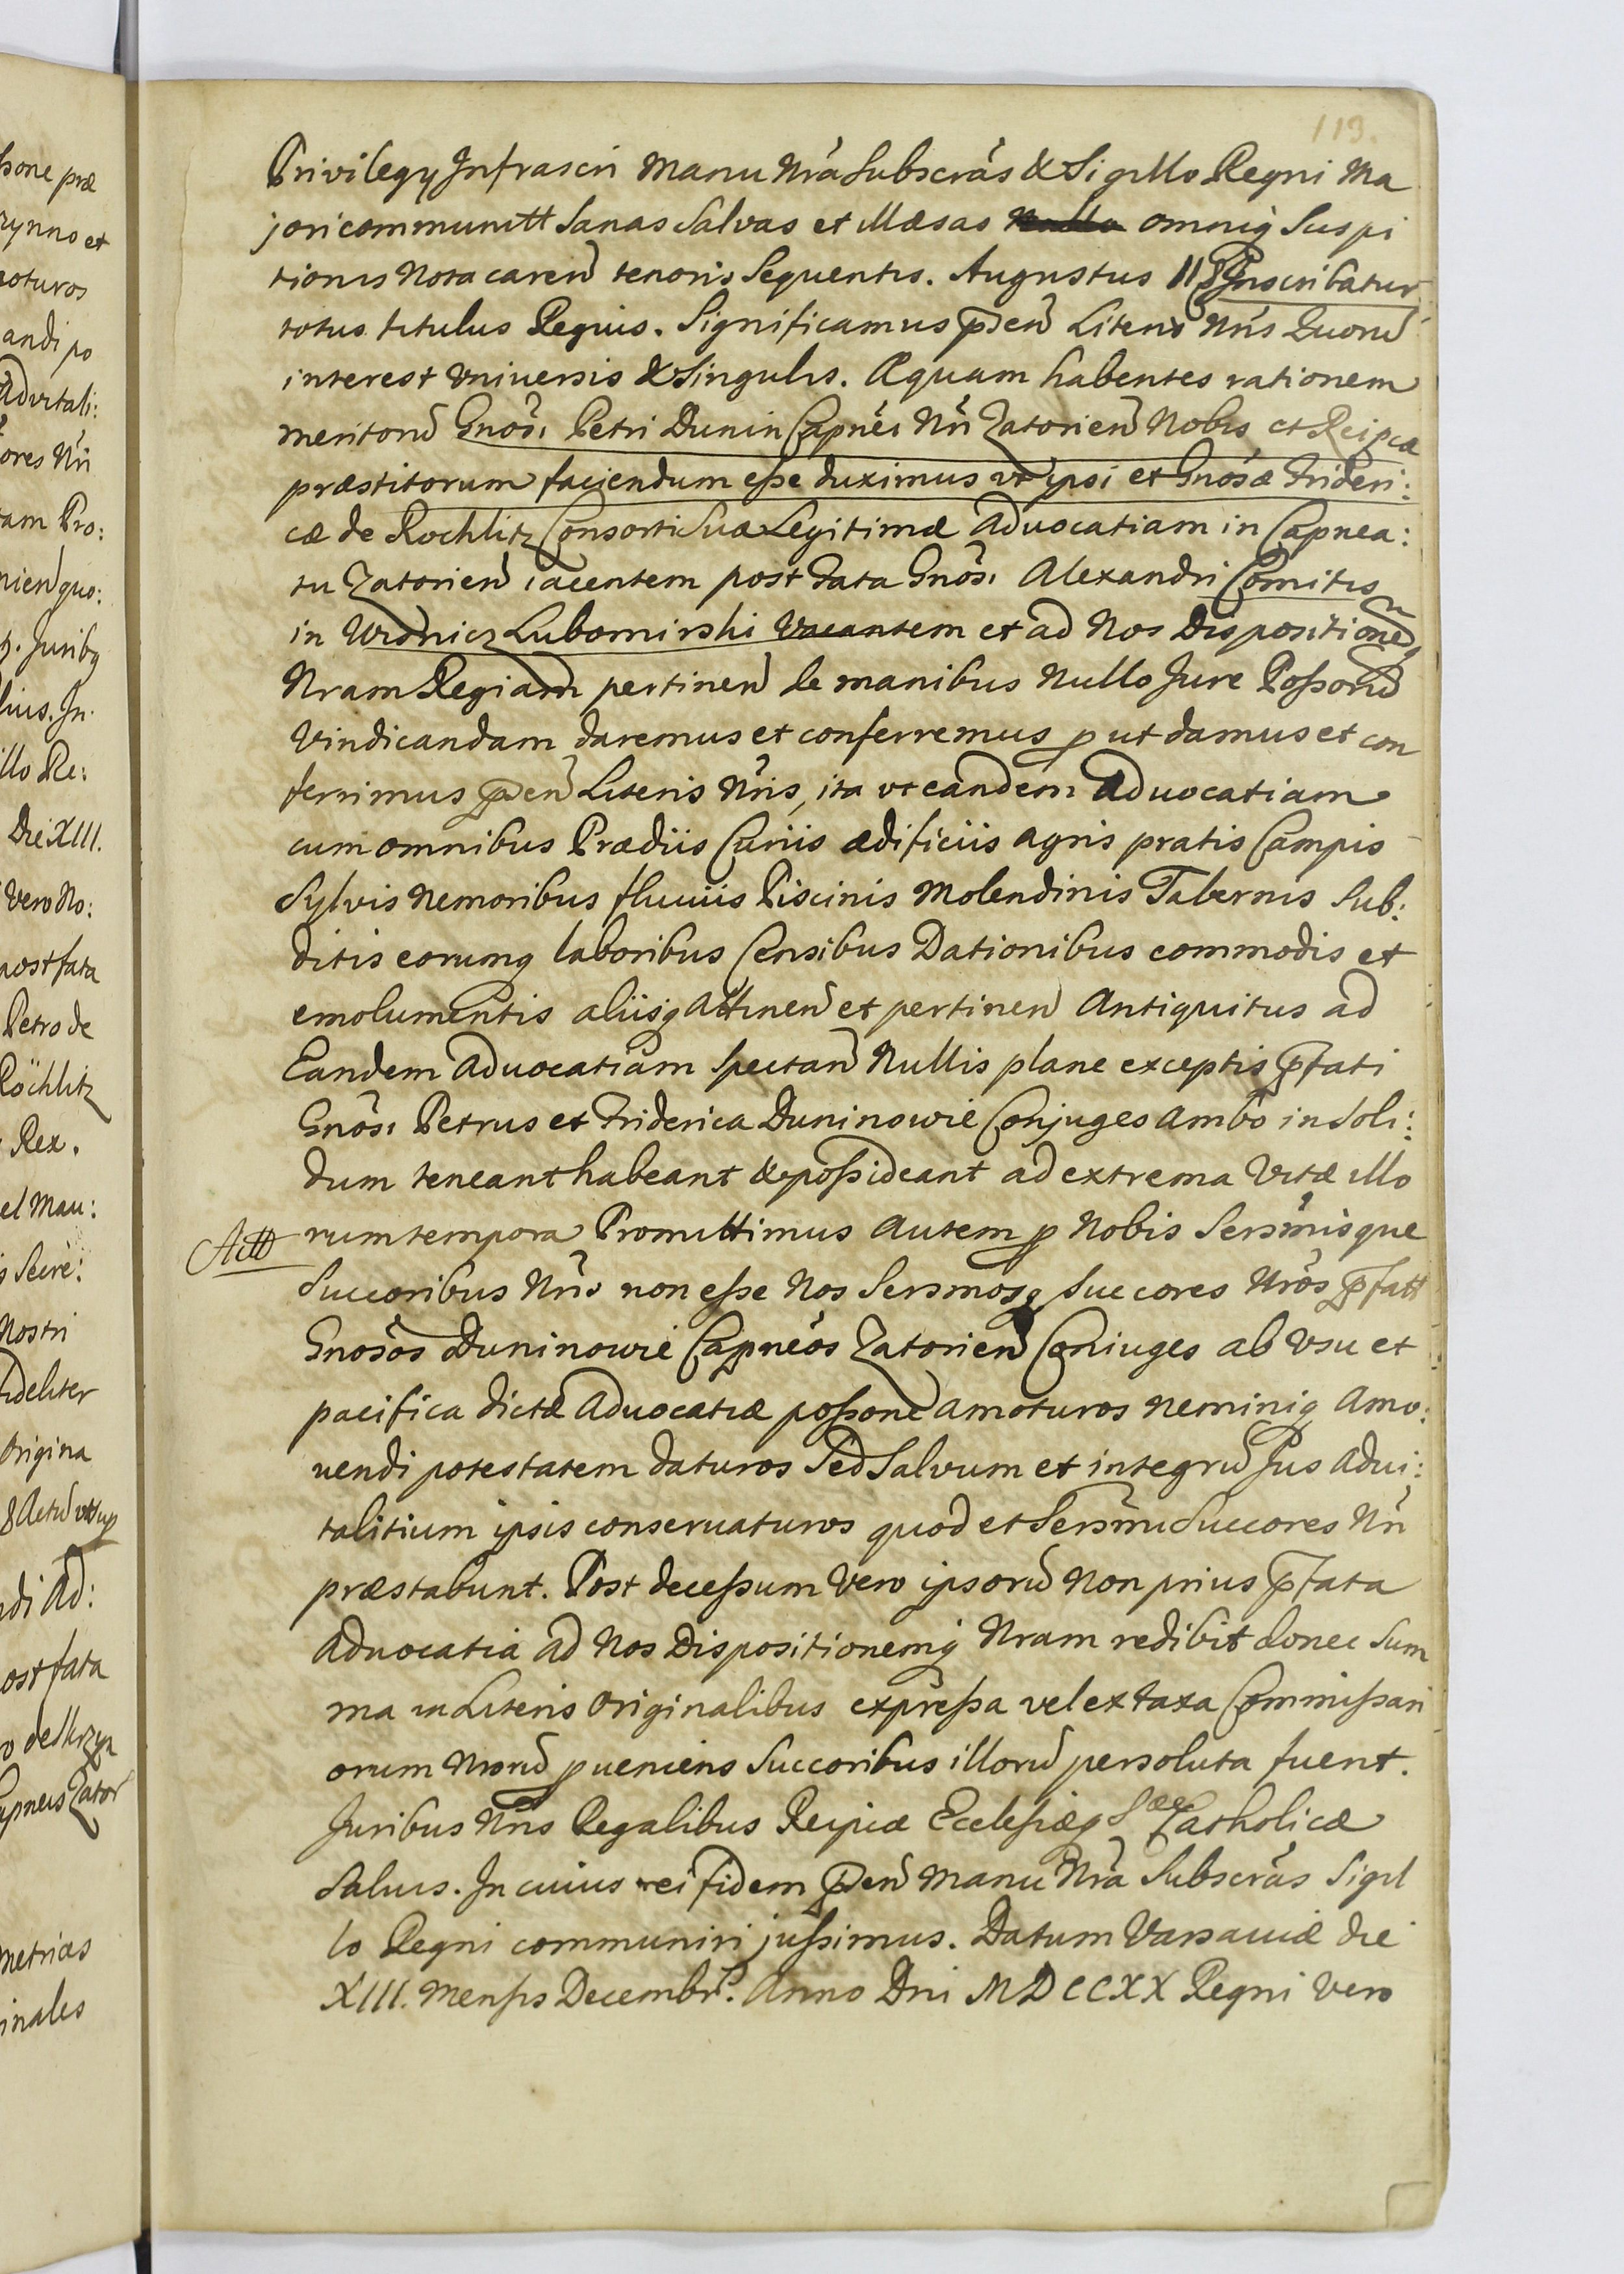 119.
Privilegij Infrascri Manu Nrâ Subscrâs & Sigillo Regni Ma
jori communitt Sanas Salvas et illæsas omniq Suspi
tionis Nota caren tenoris Sequentis. Augustus II Inscribatur
totus titulus Regius. Significamus pden Literis Nris Quorũ
interest Vniversis & Singulis. Æquam habentes rationem
meritorũ Gnosi Petri Dunin Capnei Nri Zatorien Nobis et Reipcæ
præstitorum faciendum eße duximus vt ipsi et Gnosæ Frideri:
cæ de Rochlitz Consorti Suæ Legitimæ Aduocatiam in Capnea:
tu Zatorien iacentem post Fata Gnosi Alexandri Comitis
in Wisnicz Lubomirski Vacantem et ad Nos Dispositioneq
Nram Regiam pertinen de manibus Nullo Jure Poßorũ
Vindicandam daremus et conferremus p ut damus et con
ferimus pden Literis Nris, ita vt eandem Aduocatiam
cum omnibus Prædiis Curiis ædificiis agris pratis Campis
Sylvis Nemoribus fluuiis Piscinis Molendinis Tabernis Sub:
ditis eorumq laboribus Censibus Dationibus commodis et
emolumentis aliisq Attinen et pertinen Antiquitus ad
Eandem Aduocatiam Spectan Nullis plane exceptis pfati
Gnosi Petrus et Friderica Duninowie Conjuges Ambo in Soli:
dum teneant habeant & poßideant ad extrema Vitæ illo
rum tempora Promittimus Autem p Nobis Sersmisque
Succoribus Nris non eße Nos Sersmosq Succores Nros pfatt
Gnosos Duninowie Capneos Zatorien Coniuges ab Vsu et
pacifica dictæ Aduocatiæ poßone amoturos Neminiq Amo:
uendi potestatem daturos Sed Salvum et integrũ Jus Adui:
talitium ipsis conseruaturos quod et Sersmi Succores Nri
præstabunt. Post deceßum Vero ipsorũ Non prius pfata
Aduocatia ad Nos Dispositionemq Nram redibit donec Sum
ma in Literis Originalibus expreßa vel ex taxa Commißari
orum Nrorũ pueniens Succoribus illorũ persoluta fuerit.
Juribus Nris Regalibus Reipcæ Ecclesiæq Sae Catholicæ
Saluis. In cuius rei fidem pden Manu Nrâ Subscrâs Sigil
lo Regni communiri jußimus. Datum Varsauiæ die
XIII. Mensis Decembr. Anno Dni MDCCXX Regni Vero